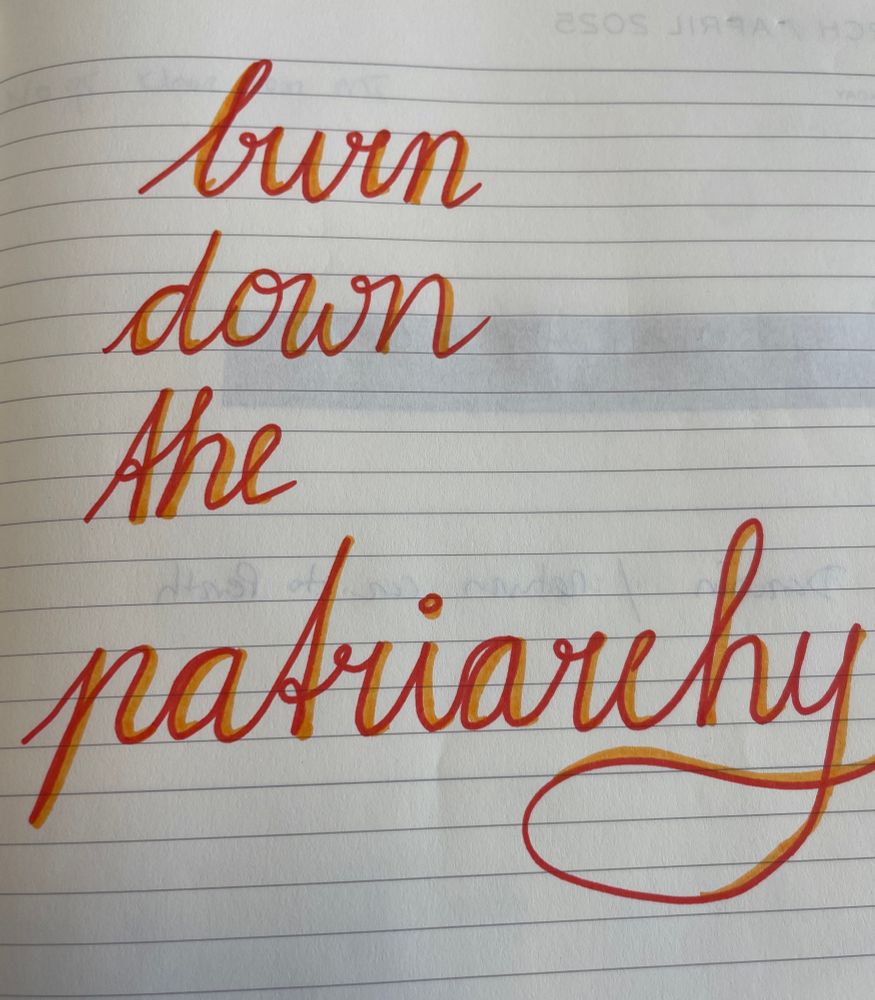 burn
down
the
patriarchy